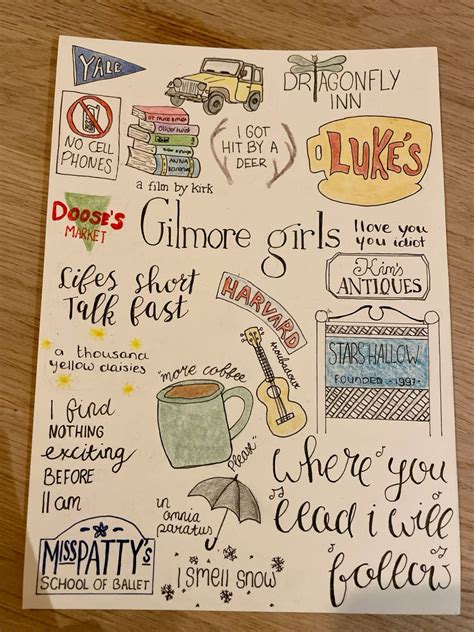 YALE
DRAGONFLY
INN
NO CELL
PHONES
OF MICE & MEN
OLIVER TWIST
ANNA
I GOT
HIT BY A
DEER
LUKE'S
a film by kirk
DOOSE'S
MARKET
Gilmore girls
I love you
you idiot
Kim's
ANTIQUES
Lifes short
Talk fast
HARVARD
troubadour
STARS HALLOW
FOUNDED -1997-
a thousand
yellow daisies
"more coffee
please"
I find
NOTHING
exciting
BEFORE
11am
where you
lead i will
follow
in
omnia
paratus
MISS PATTY'S
SCHOOL OF BALLET
I smell snow